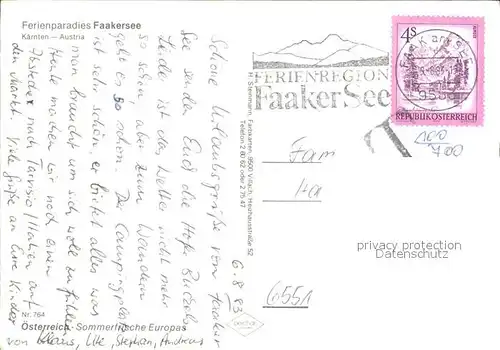 Ferienparadies Faakersee
Kärnten — Austria
Schöne Urlaubsgrüße vom Faaker
See sendet Euch die Hofer
Leider ist das Wetter nicht mehr
so schön, aber zum Wandern
geht es so schon. Der Campingplatz
ist sehr schön, er bietet alles was
man braucht um sich wohl zu fühlen.
Heute machen wir noch einen
Abstecher nach Tarvisio/Italien auf
den Markt. Viele Grüße an Eure Kinder
von Klaus, Ute, Stephan, Andreas
6.8.83
Nr. 764
Österreich - Sommerfrische Europas
H. Steinmann, Farbkarten, 9500 Villach, Heuhausstraße 52
Telefon 2 80 62 oder 2 75 47
FERIENREGION
Faaker See
4S
REPUBLIK ÖSTERREICH
100
700
Fam
6551
privacy protection
Datenschutz